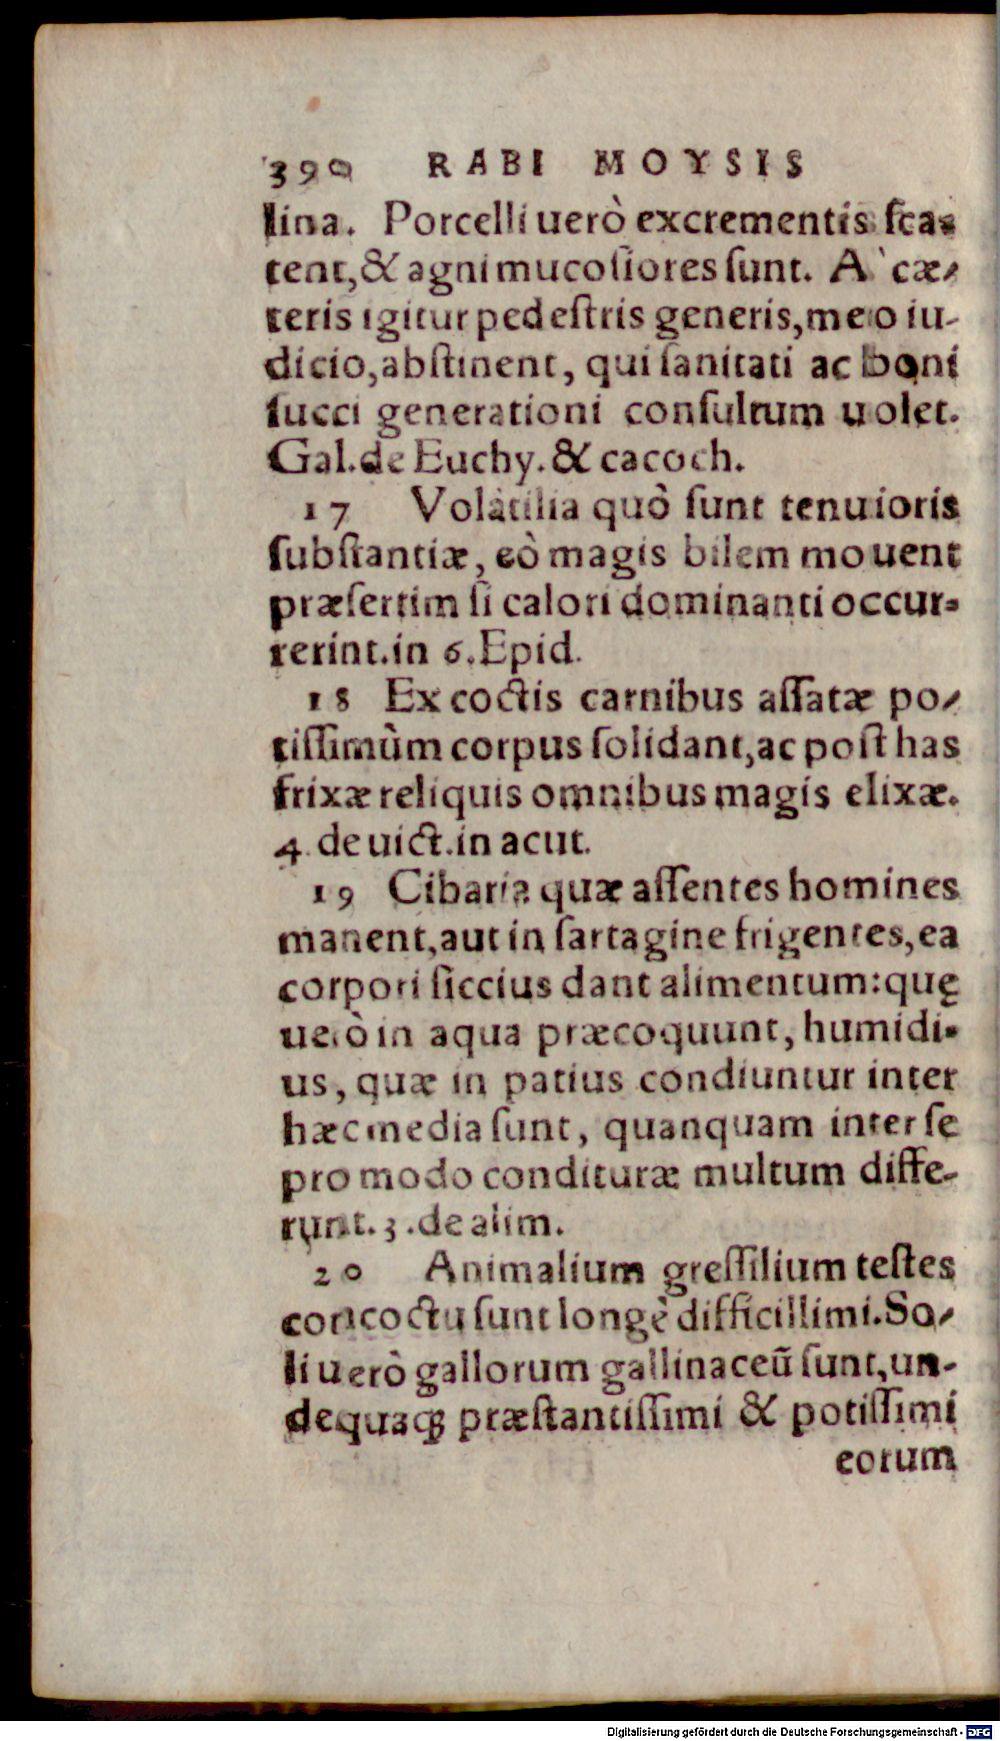 390 RABI MOYSIS
lina. Porcelli uerò excrementis ſca-
tent, & agni mucoſiores ſunt. A cæ-
teris igitur pedeſtris generis, meo iu-
dicio, abſtinent, qui ſanitati ac boni
ſucci generationi conſultum uolet.
Gal. de Euchy. & cacoch.
17 Volatilia quò ſunt tenuioris
ſubſtantiæ, eò magis bilem mouent
præſertim ſi calori dominanti occur-
rerint. in 6. Epid.
18 Ex coctis carnibus aſſatæ po-
tiſſimùm corpus ſolidant, ac poſt has
frixæ reliquis omnibus magis elixæ.
4. de uict. in acut.
19 Cibaria quæ aſſentes homines
manent, aut in ſartagine frigentes, ea
corpori ſiccius dant alimentum: quę
uerò in aqua præcoquunt, humidi-
us, quæ in patius condiuntur inter
hæc media ſunt, quanquam inter ſe
pro modo condituræ multum diffe-
runt. 3. de alim.
20 Animalium greſſilium teſtes
concoctu ſunt longè difficillimi. So-
li uerò gallorum gallinaceũ ſunt, un-
dequaqꝫ præſtantiſſimi & potiſſimi
eorum
Digitalisierung gefördert durch die Deutsche Forschungsgemeinschaft - DFG